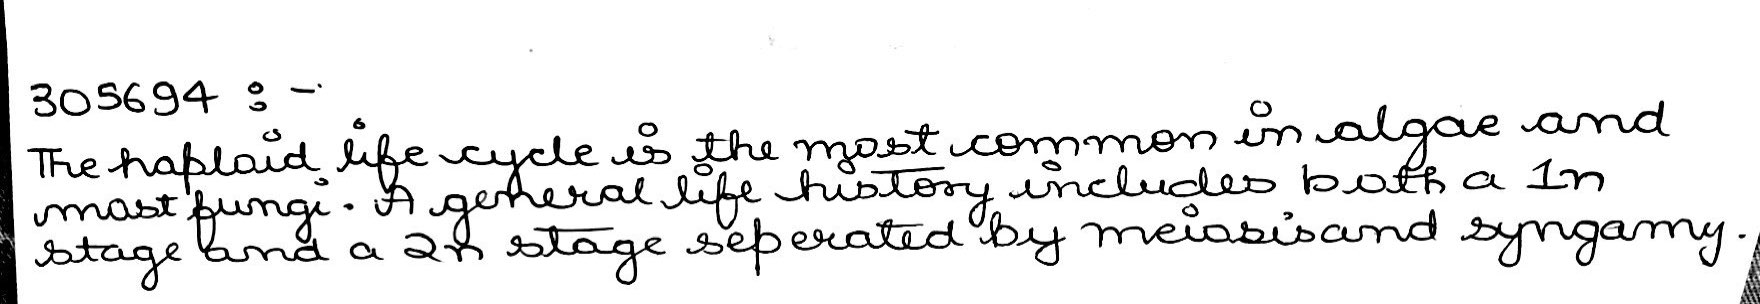 305694 :-
The haploid life cycle is the most common in algae and
most fungi. A general life history includes both a 1n
stage and a 2n stage seperated by meiosis and syngamy.